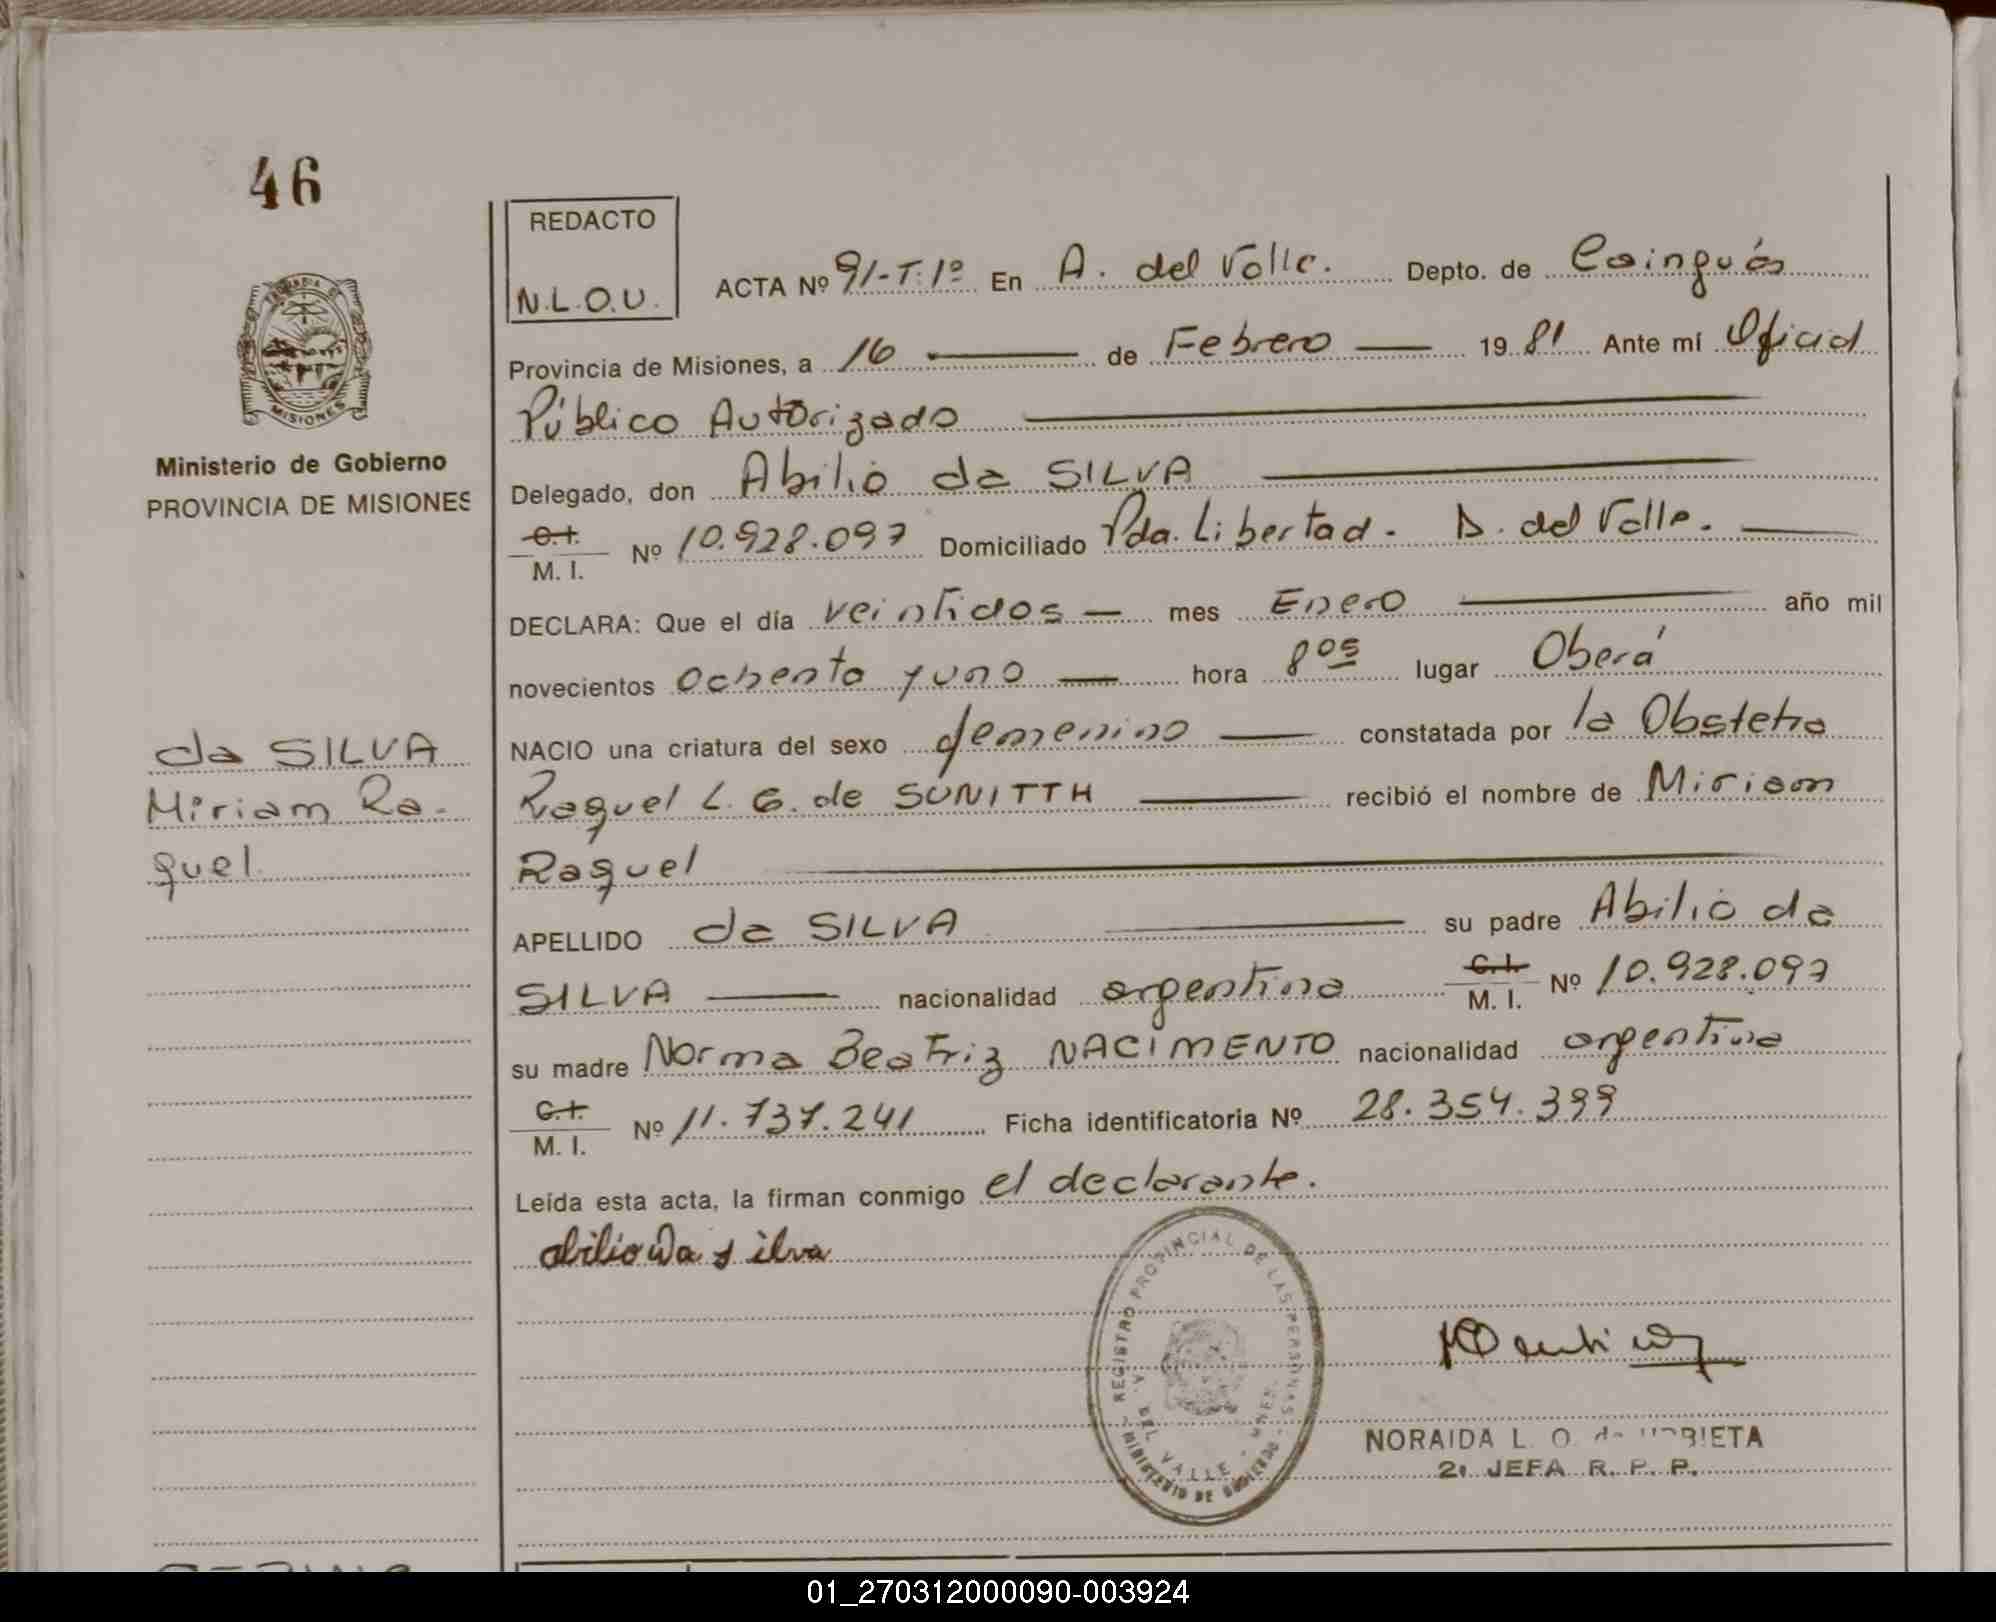 46
REDACTO
N.L.O.U.
ACTA Nº 91-T:1º En A. del Valle. Depto. de Cainguás
Provincia de Misiones, a 16 de Febrero 1981 Ante mí Oficial
Público Autorizado
MISIONES
Ministerio de Gobierno
PROVINCIA DE MISIONES
Delegado, don Abilio da SILVA
C.I.
M. I. Nº 10.928.097 Domiciliado Pda. Libertad. A. del Valle.
DECLARA: Que el día veintidos mes Enero año mil
novecientos ochenta y uno hora 8os lugar Oberá
NACIO una criatura del sexo femenino constatada por la Obstetra
Raquel L. G. de SUNITTH recibió el nombre de Miriam
Raquel
da SILVA
Miriam Ra-
quel
APELLIDO da SILVA su padre Abilio da
SILVA nacionalidad argentina C.I. M. I. Nº 10.928.097
su madre Norma Beatriz NACIMENTO nacionalidad argentina
C.I.
M. I. Nº 11.737.241 Ficha identificatoria Nº 28.354.399
Leída esta acta, la firman conmigo el declarante.
abilio Da silva
REGISTRO PROVINCIAL DE LAS PERSONAS
MINISTERIO DE GOBIERNO
DEL VALLE
NORAIDA L. O. de URBIETA
2ı JEFA R. P. P.
01_270312000090-003924